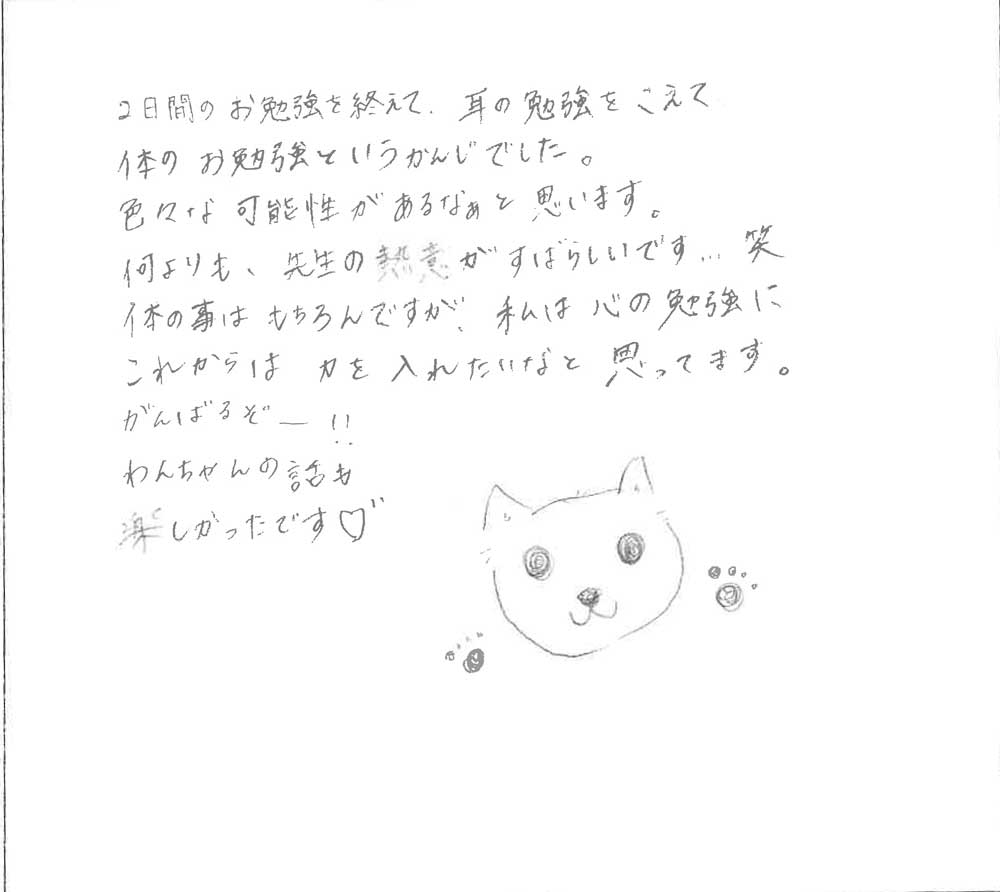 2日間のお勉強を終えて、耳の勉強をこえて
体のお勉強というかんじでした。
色々な可能性があるなぁと思います。
何よりも、先生の熱意がすばらしいです…笑
体の事はもちろんですが、私は心の勉強に
これからは力を入れたいなと思ってます。
がんばるぞー!!
わんちゃんの話も
楽しかったです♡